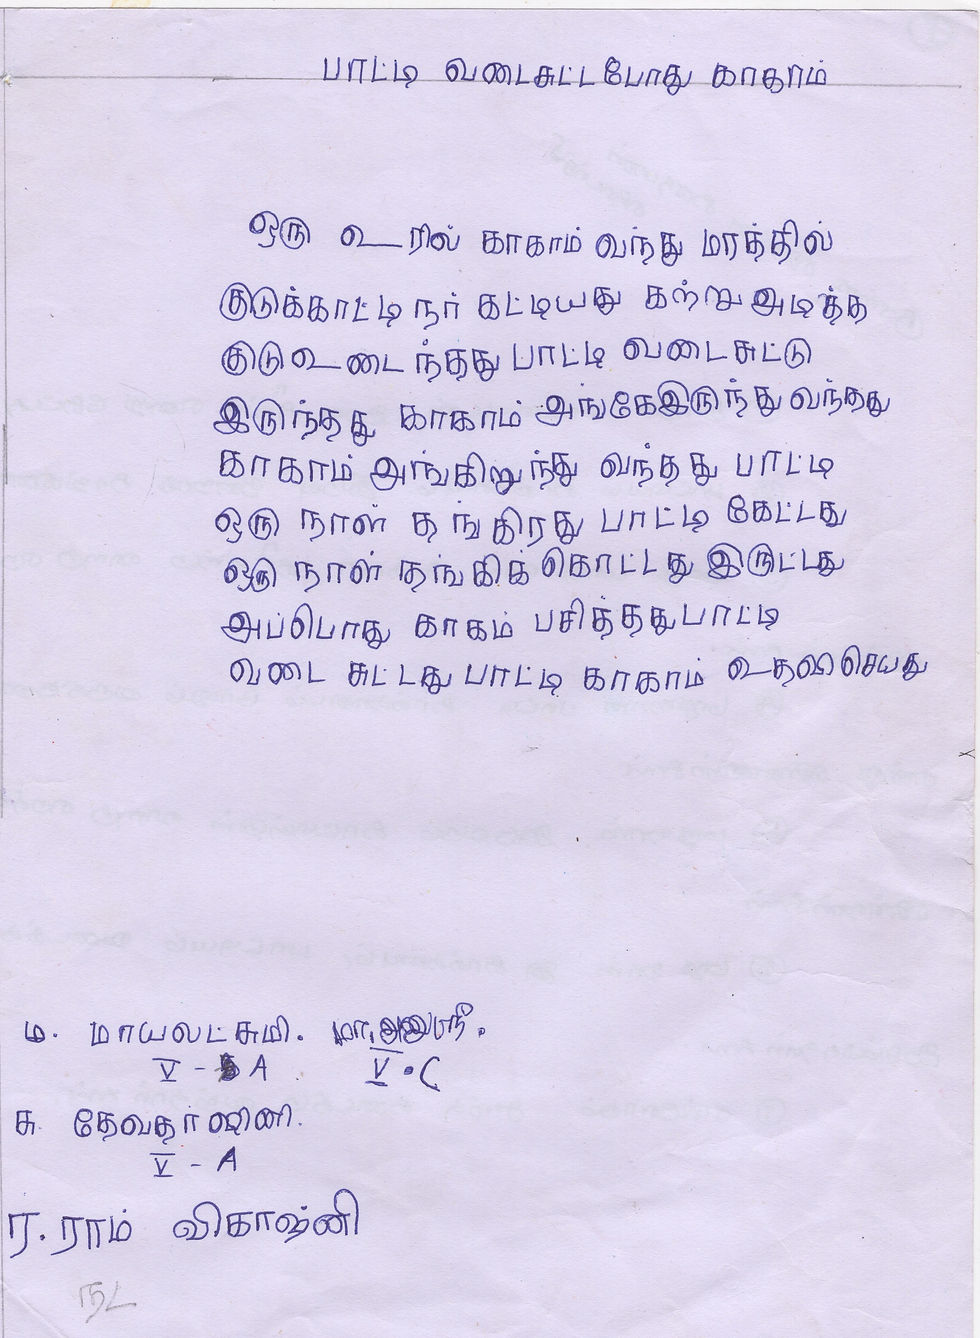 பாட்டி வடைசுட்டபோது காதாம்
ஒரு உரில் காகாம் வந்து மரத்தில்
குடுக்காட்டிநர் கட்டியது கற்று அடித்த
குடு உடைந்தது பாட்டி வடைசுட்டு
இருந்தது காகாம் அங்கேஇருந்து வந்தது
காகாம் அங்கிறுந்து வந்தது பாட்டி
ஒரு நாள் தங்கிரது பாட்டி கேட்டது
ஒரு நாள் தங்கிக் கொட்டது இருட்டது
அப்பொது காகம் பசித்தது பாட்டி
வடை சுட்டது பாட்டி காகாம் உதவிசெயது
ம. மாயலட்சுமி. மா.அனுஸ்ரீ.
V - A V - C
சு. தேவதர்ஷினி.
V - A
ர. ராம் விகாஷ்னி